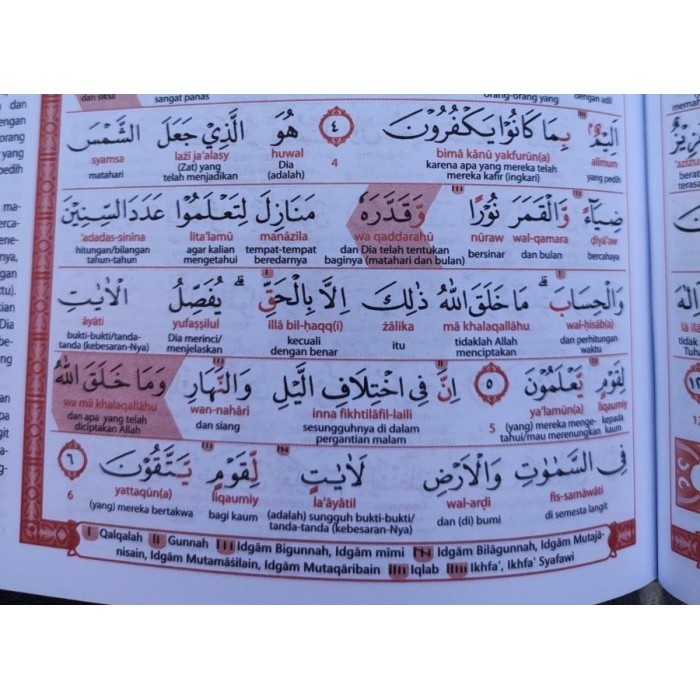 dan siksa sangat panas orang-orang yang dengan adil
اَلِيْمٌۢ بِمَا كَانُوْا يَكْفُرُوْنَ ٤ هُوَ الَّذِيْ جَعَلَ الشَّمْسَ
alimum bimā kānū yakfurūn(a) 4 huwal lażī ja'alasy syamsa
yang pedih karena apa yang mereka telah mereka kafir (ingkari) Dia (adalah) (Zat) yang telah menjadikan matahari
ضِيَاۤءً وَّالْقَمَرَ نُوْرًا وَّقَدَّرَهٗ مَنَازِلَ لِتَعْلَمُوْا عَدَدَ السِّنِيْنَ
ḍiyā'aw wal-qamara nūraw wa qaddarahū manāzila lita'lamū 'adadas-sinīna
bercahaya dan bulan bersinar dan Dia telah tentukan baginya (matahari dan bulan) tempat-tempat beredarnya agar kalian mengetahui hitungan/bilangan tahun-tahun
وَالْحِسَابَۗ مَا خَلَقَ اللّٰهُ ذٰلِكَ اِلَّا بِالْحَقِّۗ يُفَصِّلُ الْاٰيٰتِ
wal-ḥisāb(a) mā khalaqallāhu żālika illā bil-ḥaqq(i) yufaṣṣilul āyāti
dan perhitungan waktu tidaklah Allah menciptakan itu kecuali dengan benar Dia merinci/menjelaskan bukti-bukti/tanda-tanda (kebesaran-Nya)
لِقَوْمٍ يَّعْلَمُوْنَ ٥ اِنَّ فِى اخْتِلَافِ الَّيْلِ وَالنَّهَارِ وَمَا خَلَقَ اللّٰهُ
liqaumiy ya'lamūn(a) 5 inna fikhtilāfil-laili wan-nahāri wa mā khalaqallāhu
kepada kaum (yang) mereka mengetahui/mau merenungkan sesungguhnya di dalam pergantian malam dan siang dan apa yang telah diciptakan Allah
فِى السَّمٰوٰتِ وَالْاَرْضِ لَاٰيٰتٍ لِّقَوْمٍ يَّتَّقُوْنَ ٦
fis-samāwāti wal-arḍi la'āyātil liqaumiy yattaqūn(a) 6
di semesta langit dan (di) bumi (adalah) sungguh bukti-bukti/tanda-tanda (kebesaran-Nya) bagi kaum (yang) mereka bertakwa
I Qalqalah II Gunnah III Idgām Bigunnah, Idgām mīmi Idgām Bilāgunnah, Idgām Mutajā-
nisain, Idgām Mutamāśilain, Idgām Mutaqāribain Iqlab Ikhfa', Ikhfa' Syafawi